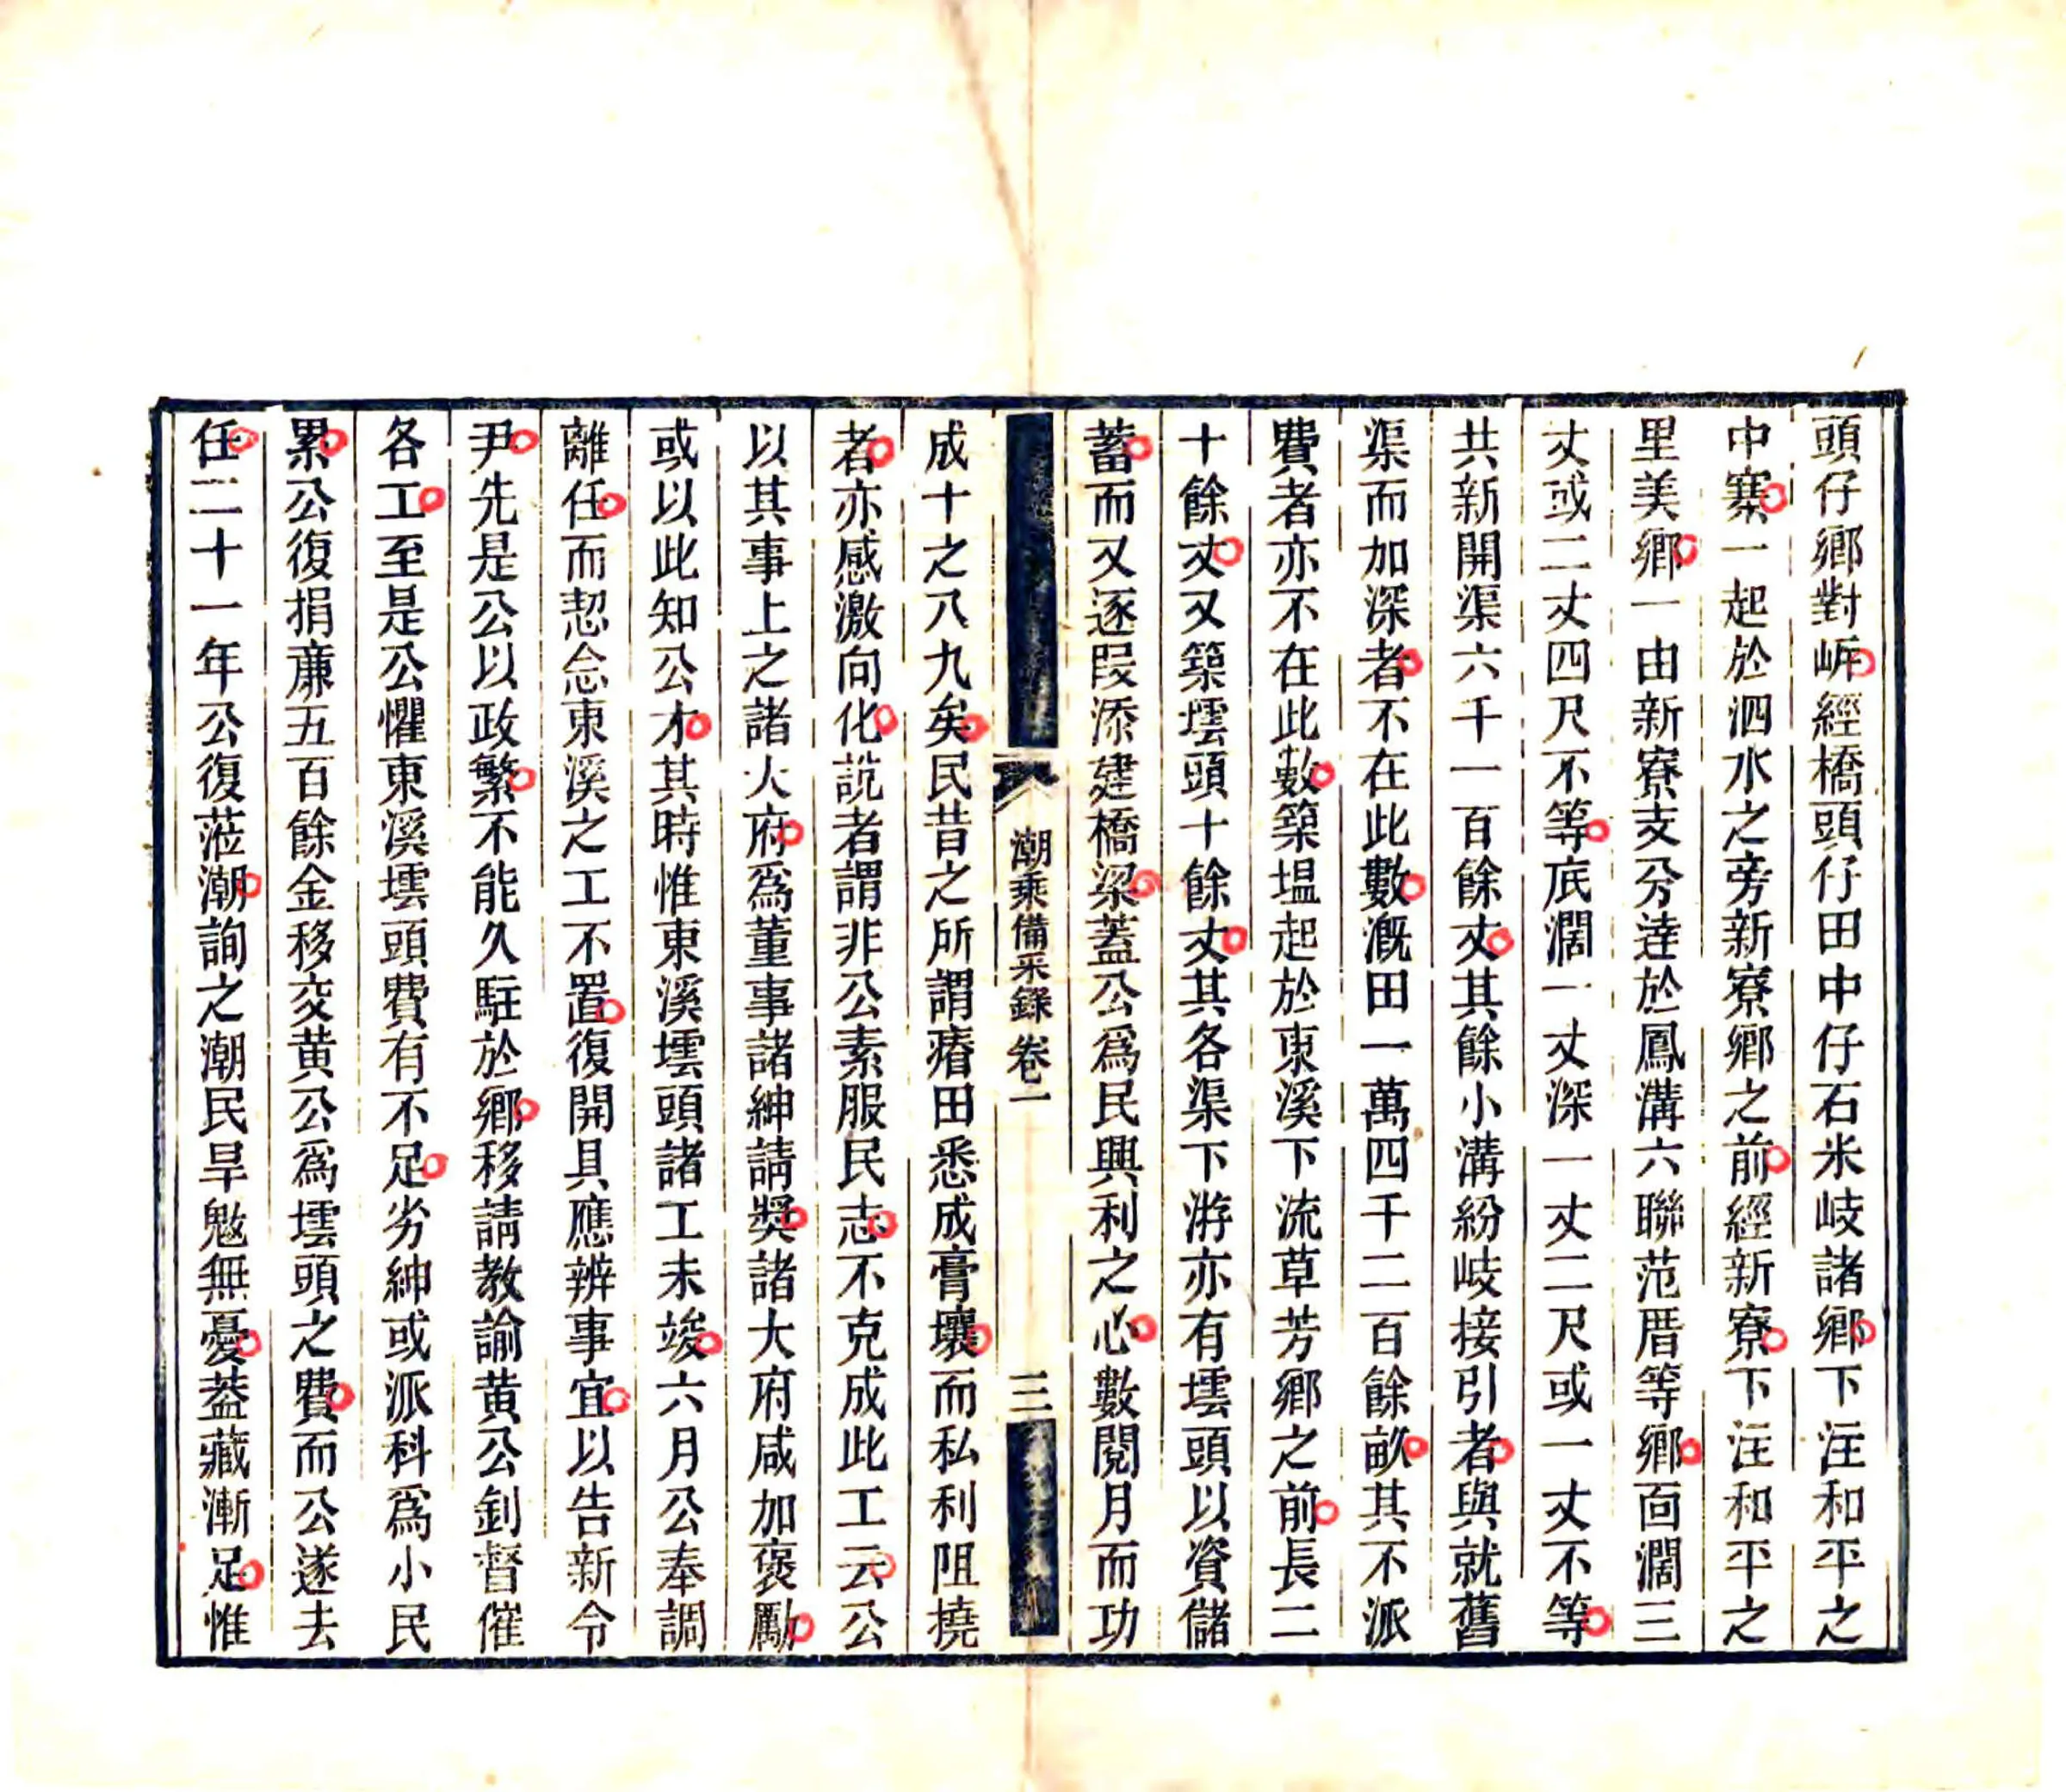 頭仔鄉對㟁經橋頭仔田中仔石米岐諸鄉下注和平之
中寨一起於泗水之旁新寮鄉之前經新寮下注和平之
里美鄉一由新寮支分達於鳳溝六聯范厝等鄉面濶三
丈或二丈四尺不等底濶一丈深一丈二尺或一丈不等
共新開渠六千一百餘丈其餘小溝紛岐接引者與就舊
渠而加深者不在此數溉田一萬四千二百餘畝其不派
費者亦不在此數築堛起於東溪下流草芳鄉之前長二
十餘丈又築壜頭十餘丈其各渠下游亦有壜頭以資儲
蓄而又逐段添建橋梁蓋公為民興利之心數閱月而功
潮乘備采錄 卷一 三
成十之八九矣民昔之所謂瘠田悉成膏壤而私利阻撓
者亦感激向化說者謂非公素服民志不克成此工云公
以其事上之諸大府為董事諸紳請獎諸大府咸加褒勵
或以此知公才其時惟東溪壜頭諸工未竣六月公奉調
離任而恝念東溪之工不置復開具應辨事宜以告新令
尹先是公以政繁不能久駐於鄉移請教諭黄公釗督催
各工至是公懼東溪壜頭費有不足劣紳或派科為小民
累公復捐亷五百餘金移交黄公為壜頭之費而公遂去
任二十一年公復蒞潮詢之潮民旱魃無憂葢藏漸足惟